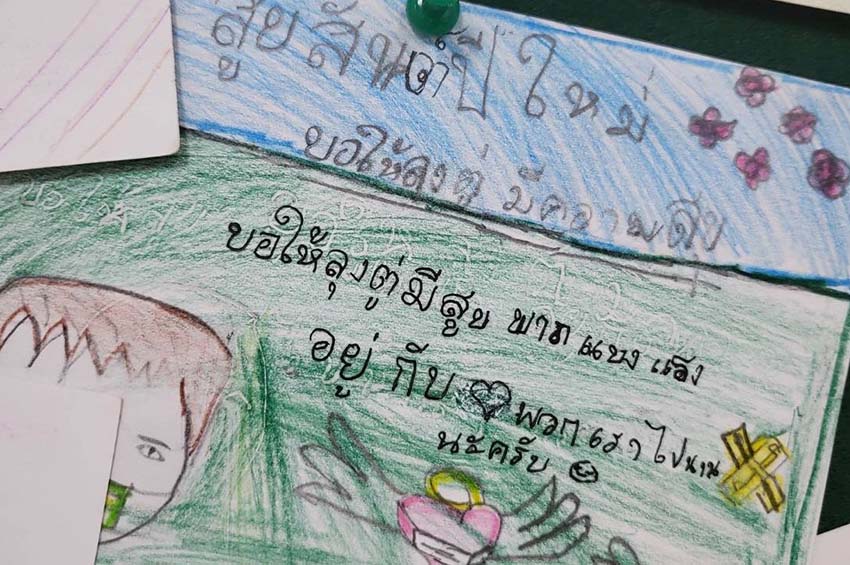 สุขสันต์ปี ใหม่
ขอให้ลุงตู่ มีความสุข
ขอให้ลุงตู่มีสุข พาภ แขงแรง
อยู่ กับ ♡ พวกเราไปนาน
นะครับ ☺
ขอให้